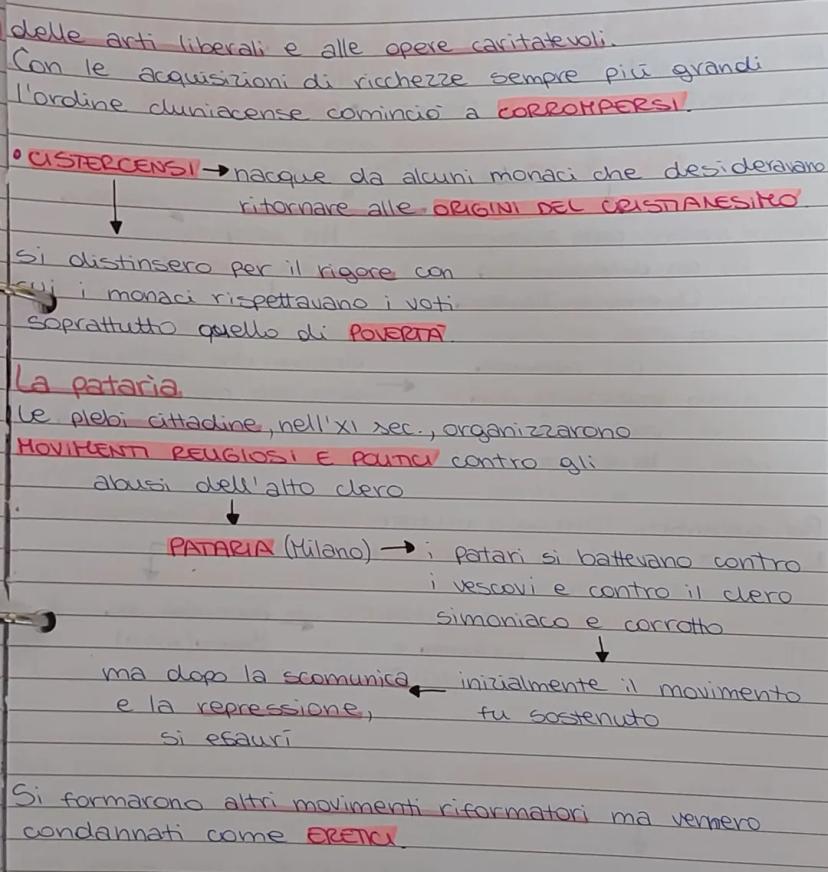 delle arti liberali e alle opere caritatevoli.
Con le acquisizioni di ricchezze sempre più grandi
l'ordine cluniacense cominciò a CORROMPERSI.
• CISTERCENSI → nacque da alcuni monaci che desideravano
ritornare alle ORIGINI DEL CRISTIANESIMO
↓
si distinsero per il rigore con
cui i monaci rispettavano i voti
soprattutto quello di POVERTÀ.
La pataria
Le plebi cittadine, nell'XI sec., organizzarono
MOVIMENTI RELIGIOSI E POLITICI contro gli
abusi dell'alto clero
↓
PATARIA (Milano) → i patari si battevano contro
i vescovi e contro il clero
simoniaco e corrotto
↓
inizialmente il movimento
fu sostenuto
← ma dopo la scomunica
e la repressione,
si esaurì
Si formarono altri movimenti riformatori ma vennero
condannati come ERETICI.